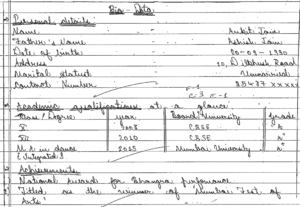 Bio Data
Personal details
Name Ankit Jain
Father's Name Ashish Jain
Date of birth 20-09-1990
Address 10, D Road
Marital Status Unmarried
Contact Number
Academic qualifications at a glance
Class / Degree year Board/University Grade
X 2008 CBSE A+
XII 2010 CBSE A+
M.A in dance 2015 Mumbai University A+
(Integrated)
Achievements
National Award for Bhangra performance
Titled as the winner of Mumbai Fest of
Arts'